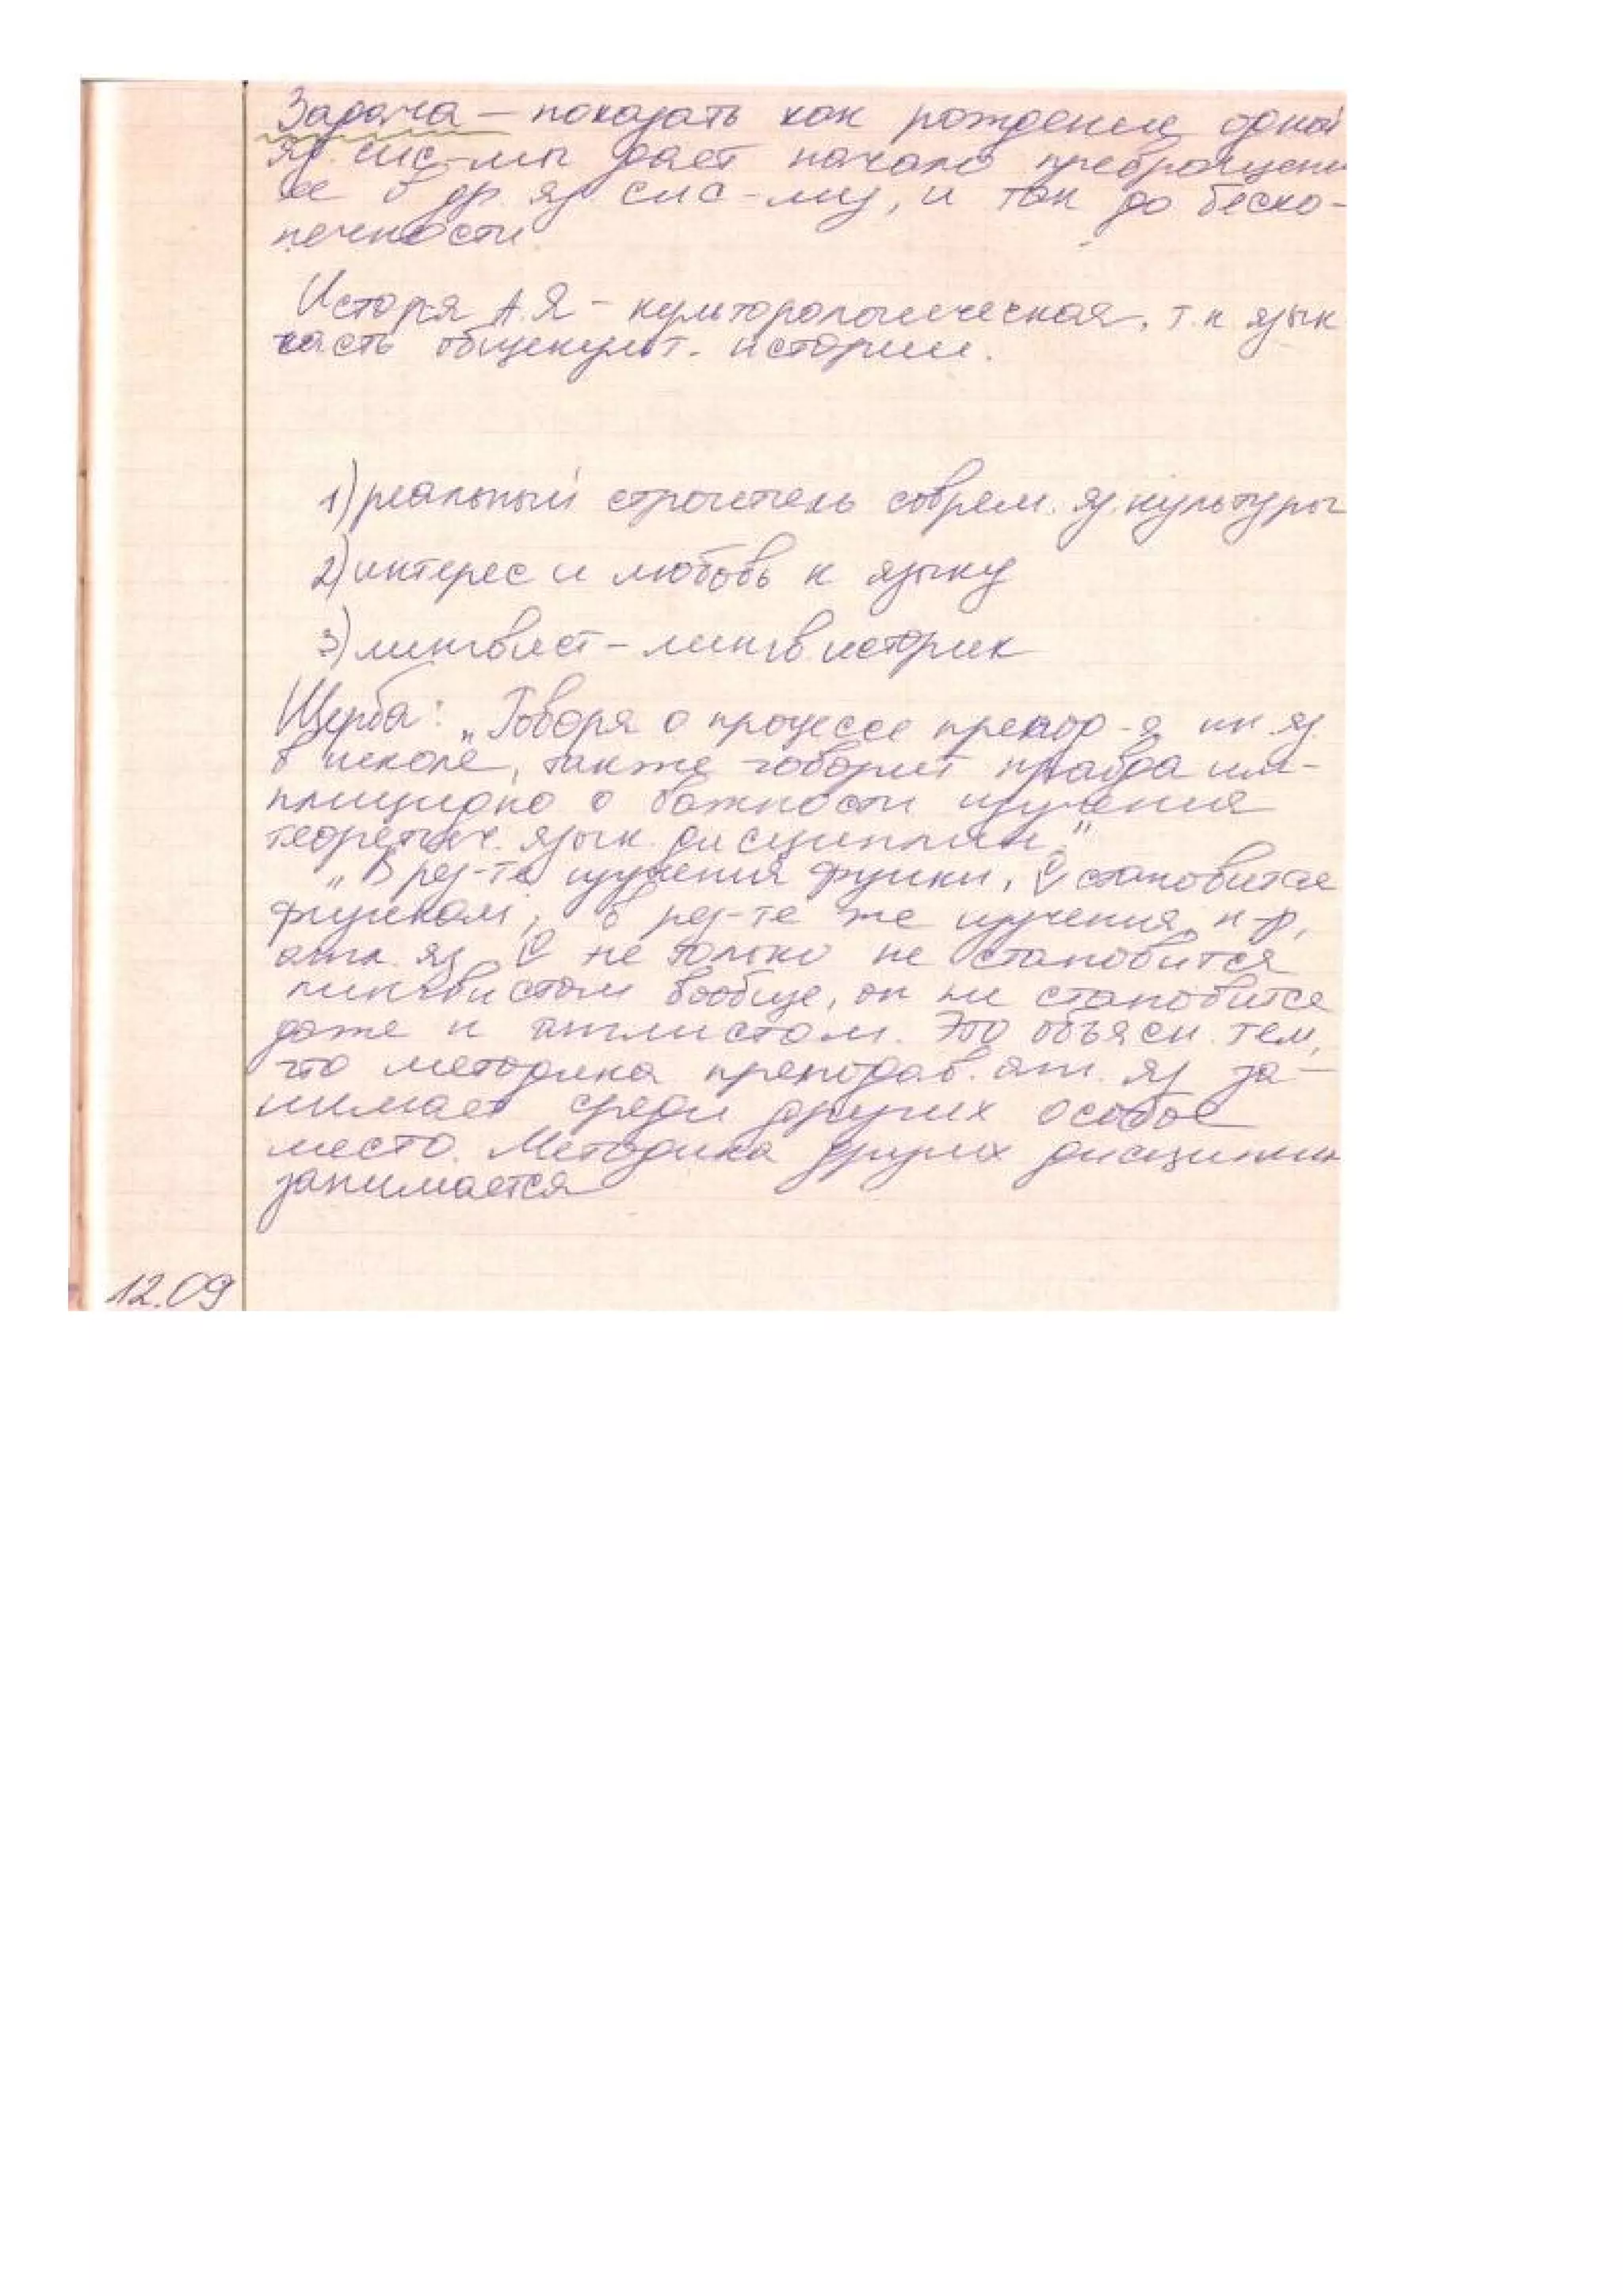 Задача – показать как рождение одной
яз. сис-мы дает начало превращени
ее в др. яз сис-му, и так до беско-
нечности.
Истор-я А.Я – культорологическая, т.к язык
часть общекульт. истории.
1) реальный строитель соврем. яз. культуры
2) интерес и любовь к языку
3) лингвист – лингв историк
Щерба: „Говоря о процессе препод-я ин яз.
в школе, также говорит правда им-
плицидно о важности изучения
теоретич. язык. дисциплин."
„В рез-те изучения физики, становится
физиком, в рез-те же изучения, н-р,
англ. яз, не только не становится
лингвистом вообще, он не становится
даже и англистом. Это объясн. тем,
что методика преподав. анг. яз за-
нимает среди других особое
место. Методика других дисциплин
занимается
12.09